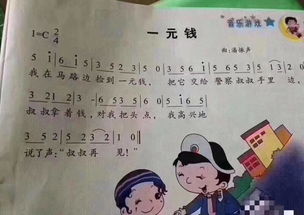 音乐游戏
1=C 2/4
一元钱
曲：潘振声
5 i | 6 i 5 | 3 5 2 3 | 5 0 |
我在马路边捡到一元钱， 把它交给警察叔叔手里
3 2 1 2 | 3 - | 6 5 3 5 | 6 5 3 | 5 i 6 5 |
叔叔拿着钱，对我把头点，我高兴地
3 5 2 | 5 2 3 2 | 1 0 ‖
说了声：“叔叔再 见！”